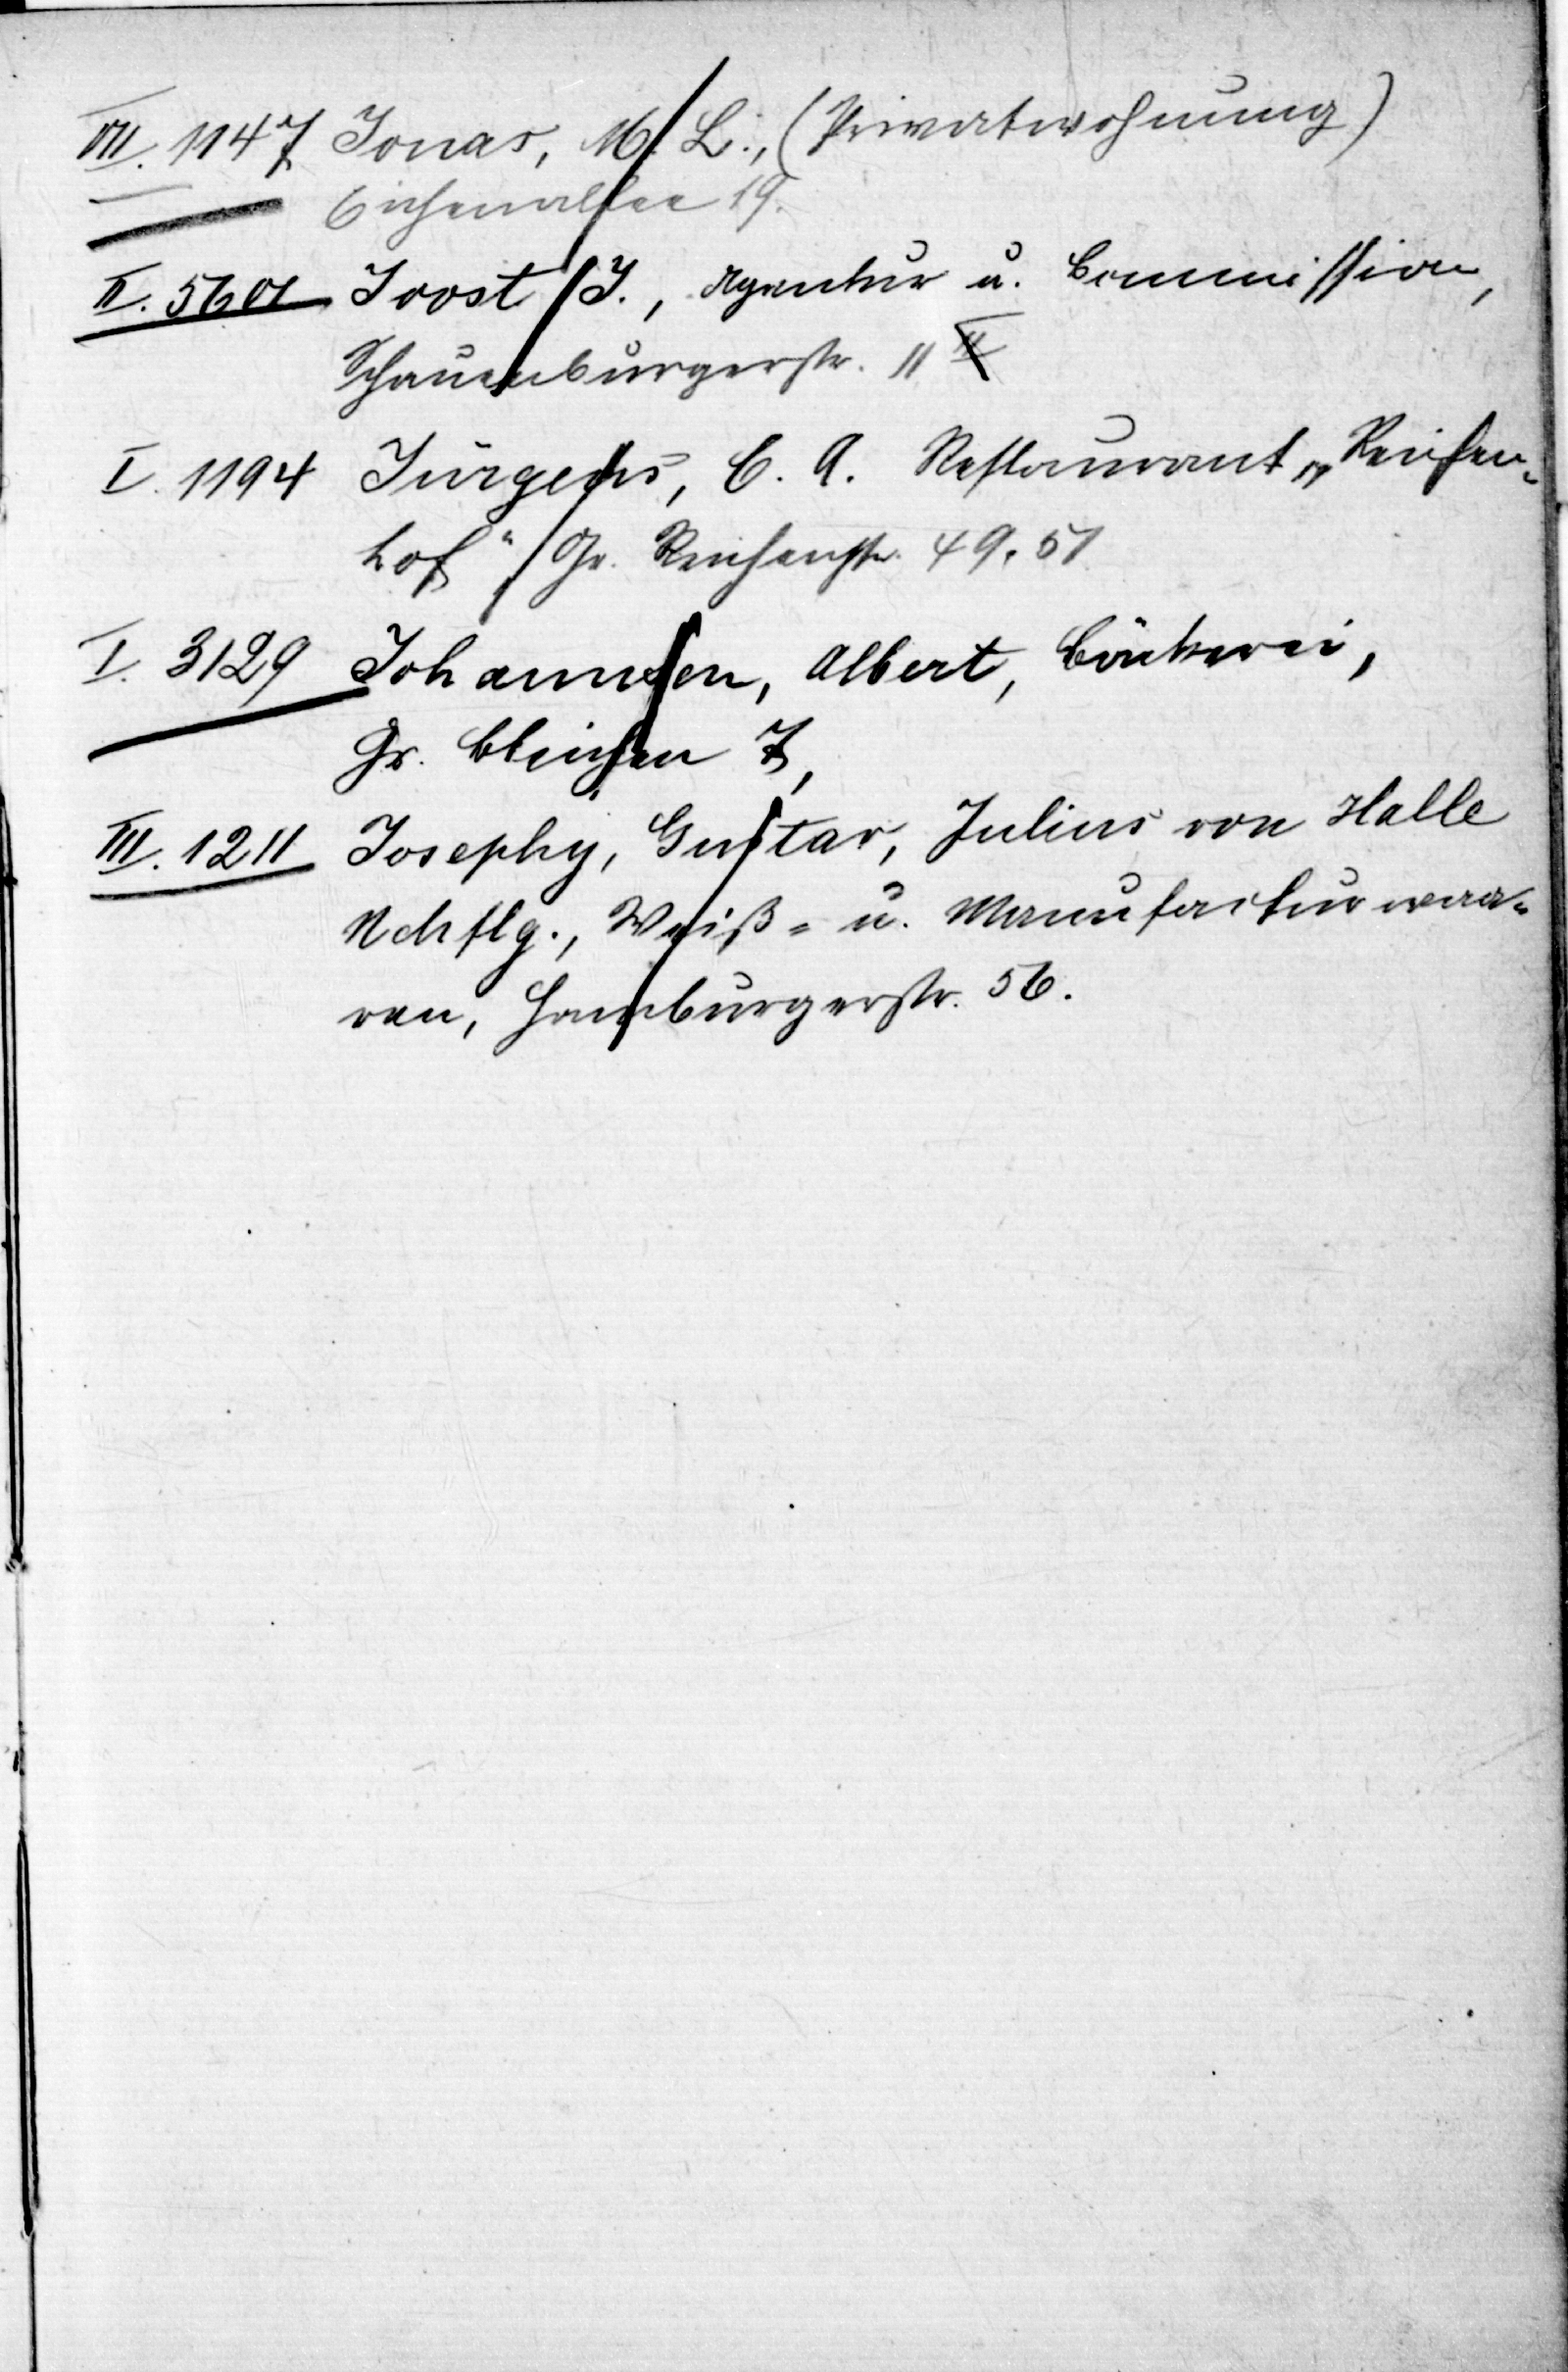 VII. 1147 Jonas, M. L., (Privatwohnung)
Eichenallee 19.
II. 5601 Joost J., Agentur u. Commission,
Schauenburgerstr. 11 III
I. 1194 Jürgens, C. A. Restaurant „Reichen-
hof“ Gr. Reichenstr. 49.51
I. 3129 Johannsen, Albert, Bäckerei,
Gr. Bleichen 7,
III. 1211 Josephy, Gustav, Julius von Halle
Nchflg., Weiß- u. Manufacturwaa-
ren, Hamburgerstr. 56.